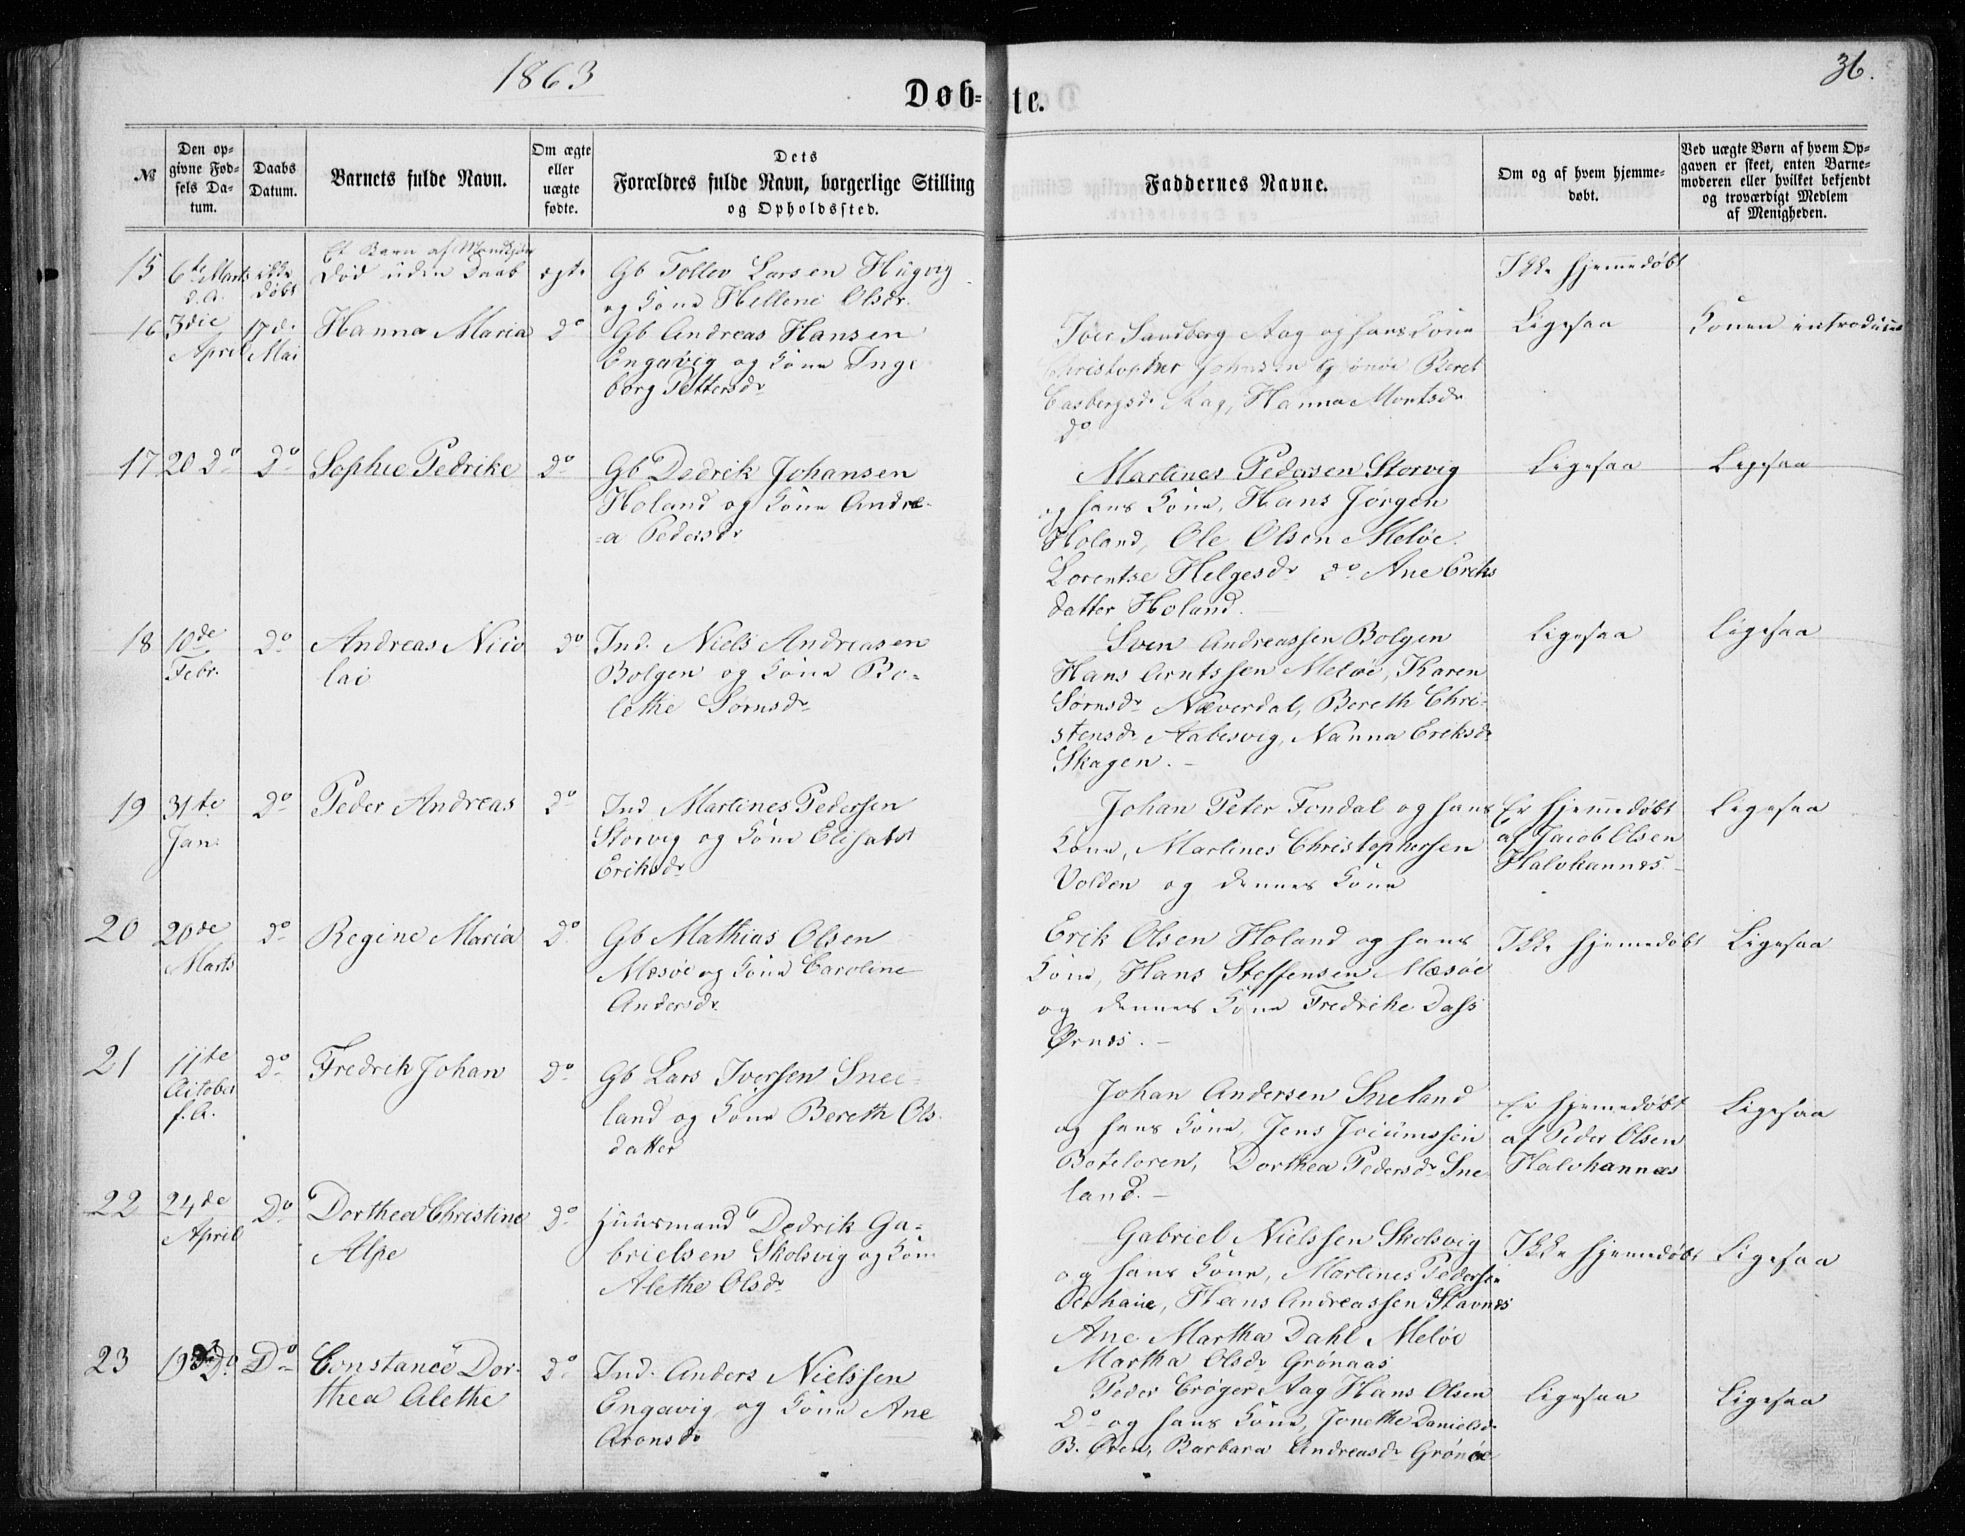 1863
36.
Døb-
te.
№
Den op-
givne Fød-
sels Da-
tum.
Daabs
Datum.
Barnets fulde Navn.
Om ægte
eller
uægte
fødte.
Dets
Forældres fulde Navn, borgerlige Stilling
og Opholdssted.
Faddernes Navne.
Om og af hvem hjemme-
døbt.
Ved uægte Børn af hvem Op-
gaven er skeet, enten Barne-
moderen eller hvilket bekjendt
og troværdigt Medlem
af Menigheden.
15
6te Marts
d. A.
ikke
døbt
Et Barn af Mandkjøn
død uden Daab
ægte
Gb Tollev Larsen Hugvig
og Kone Hellene Olsdr
Ikke hjemmedøbt
16
3die
April
17de
Mai
Hanna Maria
Do
Gb Andreas Hansen
Engavig og Kone Inge
borg Pettersdr
Iver Sandberg Aag og hans Kone
Christopher Johnsen Grønøe Beret
Casbergsdr Aag, Hanna Mortsdr
Do
Ligesaa
Konen introduceret
17
20 Do
Do
Sophie Pedrike
Do
Gb Dedrik Johansen
Holand og Kone Andre-
-a Pedersdr
Martines Pedersen Storvig
og hans Kone, Hans Jørgen
Holand, Ole Olsen Meløe.
Lorentse Helgesdr Do Ane Eriks
datter Holand.
Ligesaa
Ligesaa
18
10de
Febr.
Do
Andreas Nico
lai
Do
Ind. Niels Andreasen
Bolgen og Kone Bo-
lethe Sørnsdr
Sven Andreassen Bolgen
Hans Arntssen Meløe, Karen
Sørnsdr Næverdal, Bereth Chri-
stensdr Aabesvig, Nanna Eriksdr
Skagen. -
Ligesaa
Ligesaa
19
31te
Jan.
Do
Peder Andreas
Do
Ind Martines Pedersen
Storvig og Kone Elisabet
Eriksdr
Johan Peter Fondal og hans
Kone, Martines Christophersen
Volden og dennes Kone
Er hjemmedøbt
af Jacob Olsen
Halvhannes -
Ligesaa
20
20de
Marts
Do
Regine Maria
Do
Gb Mathias Olsen
Mæsøe og Kone Caroline
Andersdr
Erik Olsen Holand og hans
Kone, Hans Steffensen Mæsøe
og dennes Kone Fredrike Dass
Ørnes. -
Ikke hjemedøbt
Ligesaa
21
11te
October
f. A.
Do
Fredrik Johan
Do
Gb Lars Iversen Snee-
land og Kone Bereth Ols
datter
Johan Andersen Sneland
og hans Kone, Jens Jocumssen
Boteloren, Dorthea Pedersdr Sne
land. -
Er hjemedøbt
af Peder Olsen
Halvhannæs
Ligesaa
22
24de
April
Do
Dorthea Christine
Do
Huusmand Dedrik Ga-
brielsen Skolsvig og Kone
Alethe Olsdr
Gabriel Nielssen Skolsvig
og hans Kone, Martines Pedersen
Hans Andreassen Stavnes
Ane Martha Dahl Meløe
Martha Olsdr Grønaas
Ikke hjemedøbt
Ligesaa
23
19de Do
Do
Constance Dor-
thea Alethe
Do
Ind. Anders Nielssen
Engavig og Kone Ane
Aronsdr
Peder Crøger Aag Hans Olsen
Do og hans Kone, Jonethe Danielsdr
B. Øren, Barbara Andreasdr Grønøe
Ligesaa
Ligesaa